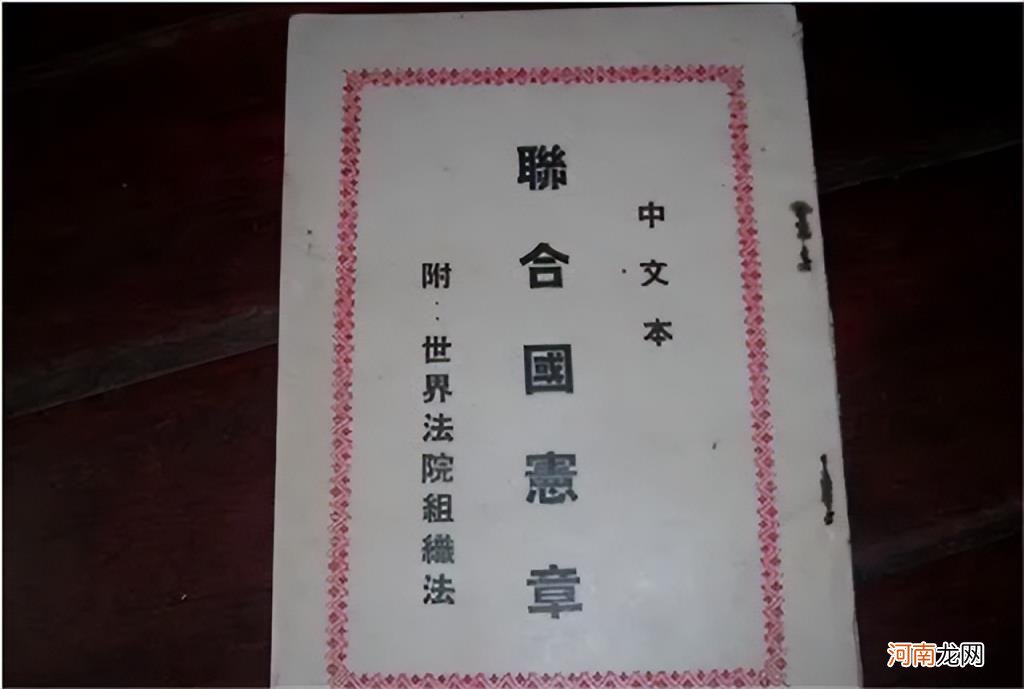 中文本
聯合國憲章
附：世界法院組織法
河南龙网